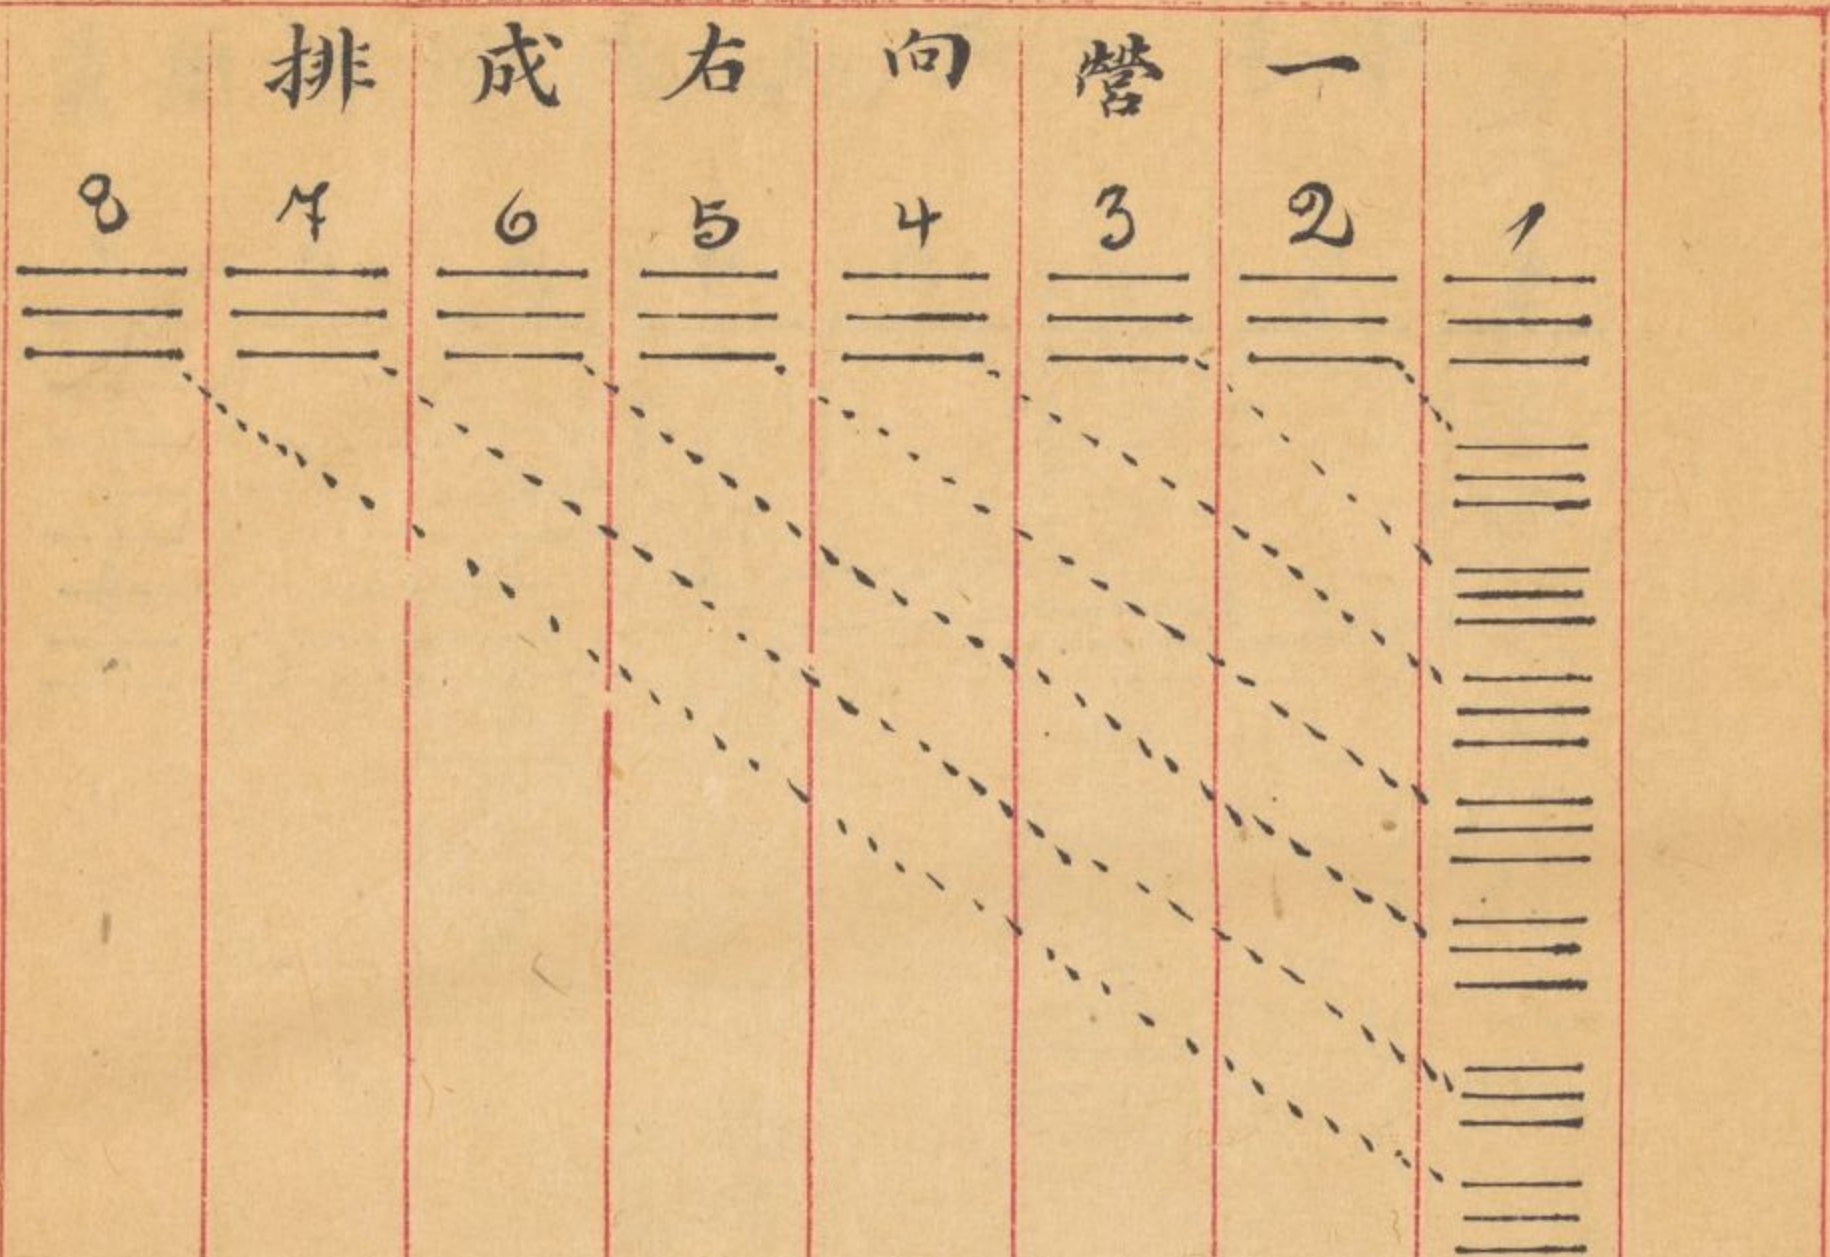 一營向右成排
1 2 3 4 5 6 7 8